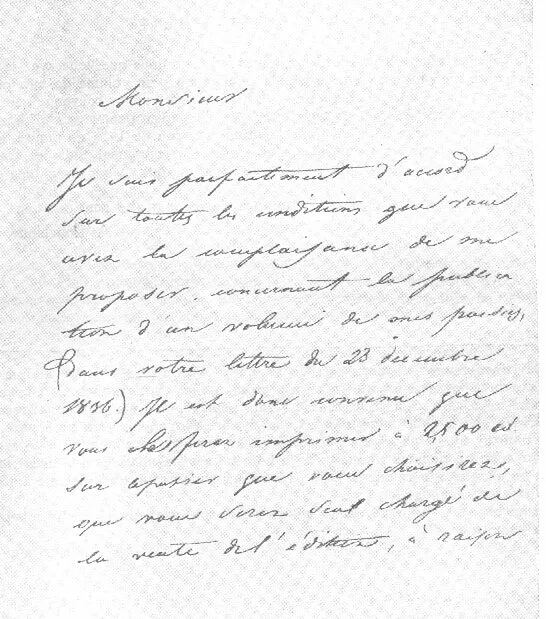 Monsieur
Je suis parfaitement d'accord
sur toutes les conditions que vous
avez la complaisance de me
proposer, concernant la publica
tion d'un volume de mes poesies,
(Dans votre lettre du 23 decembre
1836.) Il est donc convenu que
vous ferez imprimer à 2500 ex
sur papier que vous choisirez,
que vous serez seul chargé de
la vente de l'édition, à raison